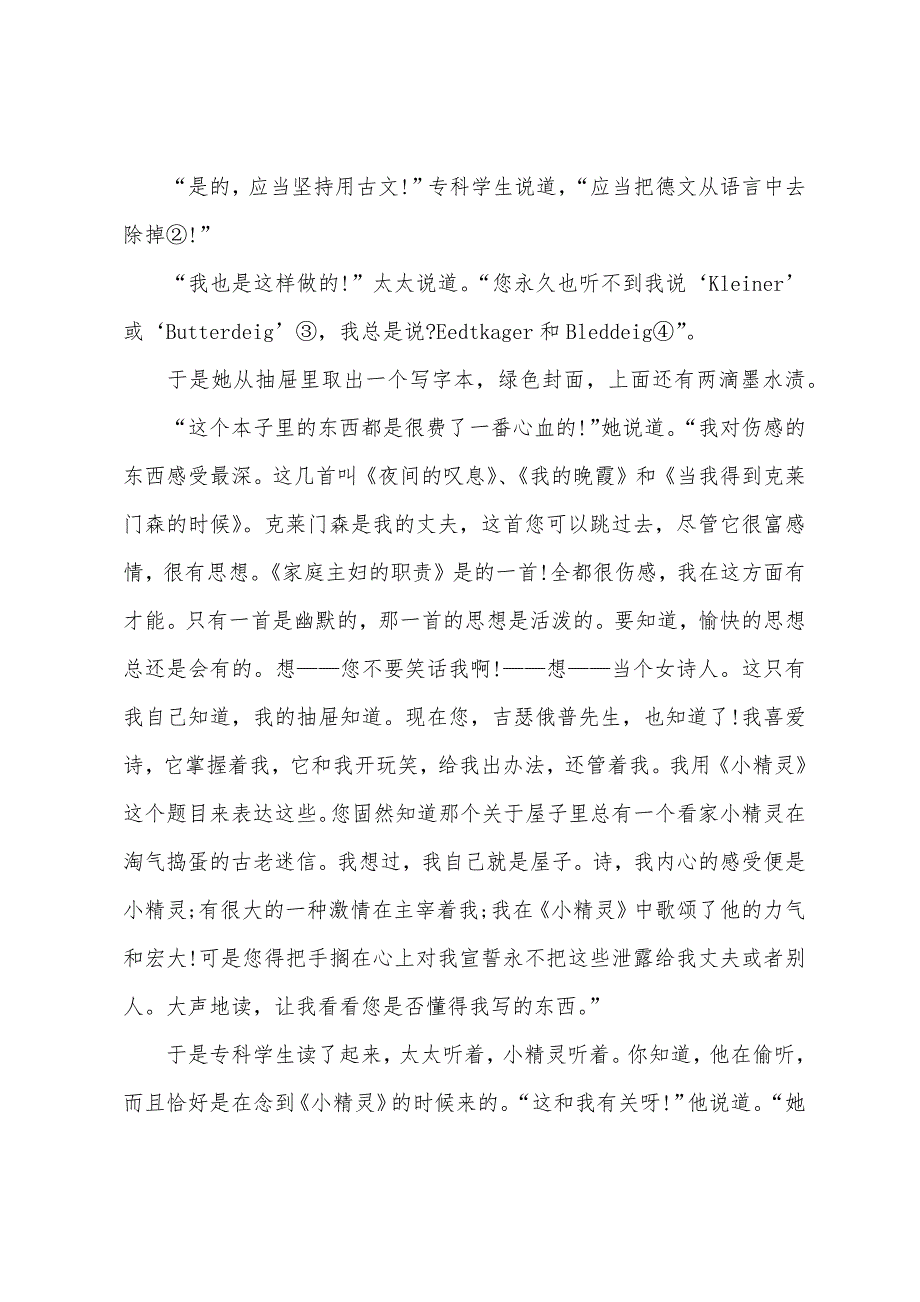 “是的，应当坚持用古文!”专科学生说道，“应当把德文从语言中去
除掉②!”
“我也是这样做的!”太太说道。“您永久也听不到我说‘Kleiner’
或‘Butterdeig’③，我总是说?Eedtkager 和 Bleddeig④”。
于是她从抽屉里取出一个写字本，绿色封面，上面还有两滴墨水渍。
“这个本子里的东西都是很费了一番心血的!”她说道。“我对伤感的
东西感受最深。这几首叫《夜间的叹息》、《我的晚霞》和《当我得到克莱
门森的时候》。克莱门森是我的丈夫，这首您可以跳过去，尽管它很富感
情，很有思想。《家庭主妇的职责》是的一首!全都很伤感，我在这方面有
才能。只有一首是幽默的，那一首的思想是活泼的。要知道，愉快的思想
总还是会有的。想——您不要笑话我啊!——想——当个女诗人。这只有
我自己知道，我的抽屉知道。现在您，吉瑟俄普先生，也知道了!我喜爱
诗，它掌握着我，它和我开玩笑，给我出办法，还管着我。我用《小精灵》
这个题目来表达这些。您固然知道那个关于屋子里总有一个看家小精灵在
淘气捣蛋的古老迷信。我想过，我自己就是屋子。诗，我内心的感受便是
小精灵;有很大的一种激情在主宰着我;我在《小精灵》中歌颂了他的力气
和宏大!可是您得把手搁在心上对我宣誓永不把这些泄露给我丈夫或者别
人。大声地读，让我看看您是否懂得我写的东西。”
于是专科学生读了起来，太太听着，小精灵听着。你知道，他在偷听，
而且恰好是在念到《小精灵》的时候来的。“这和我有关呀!”他说道。“她